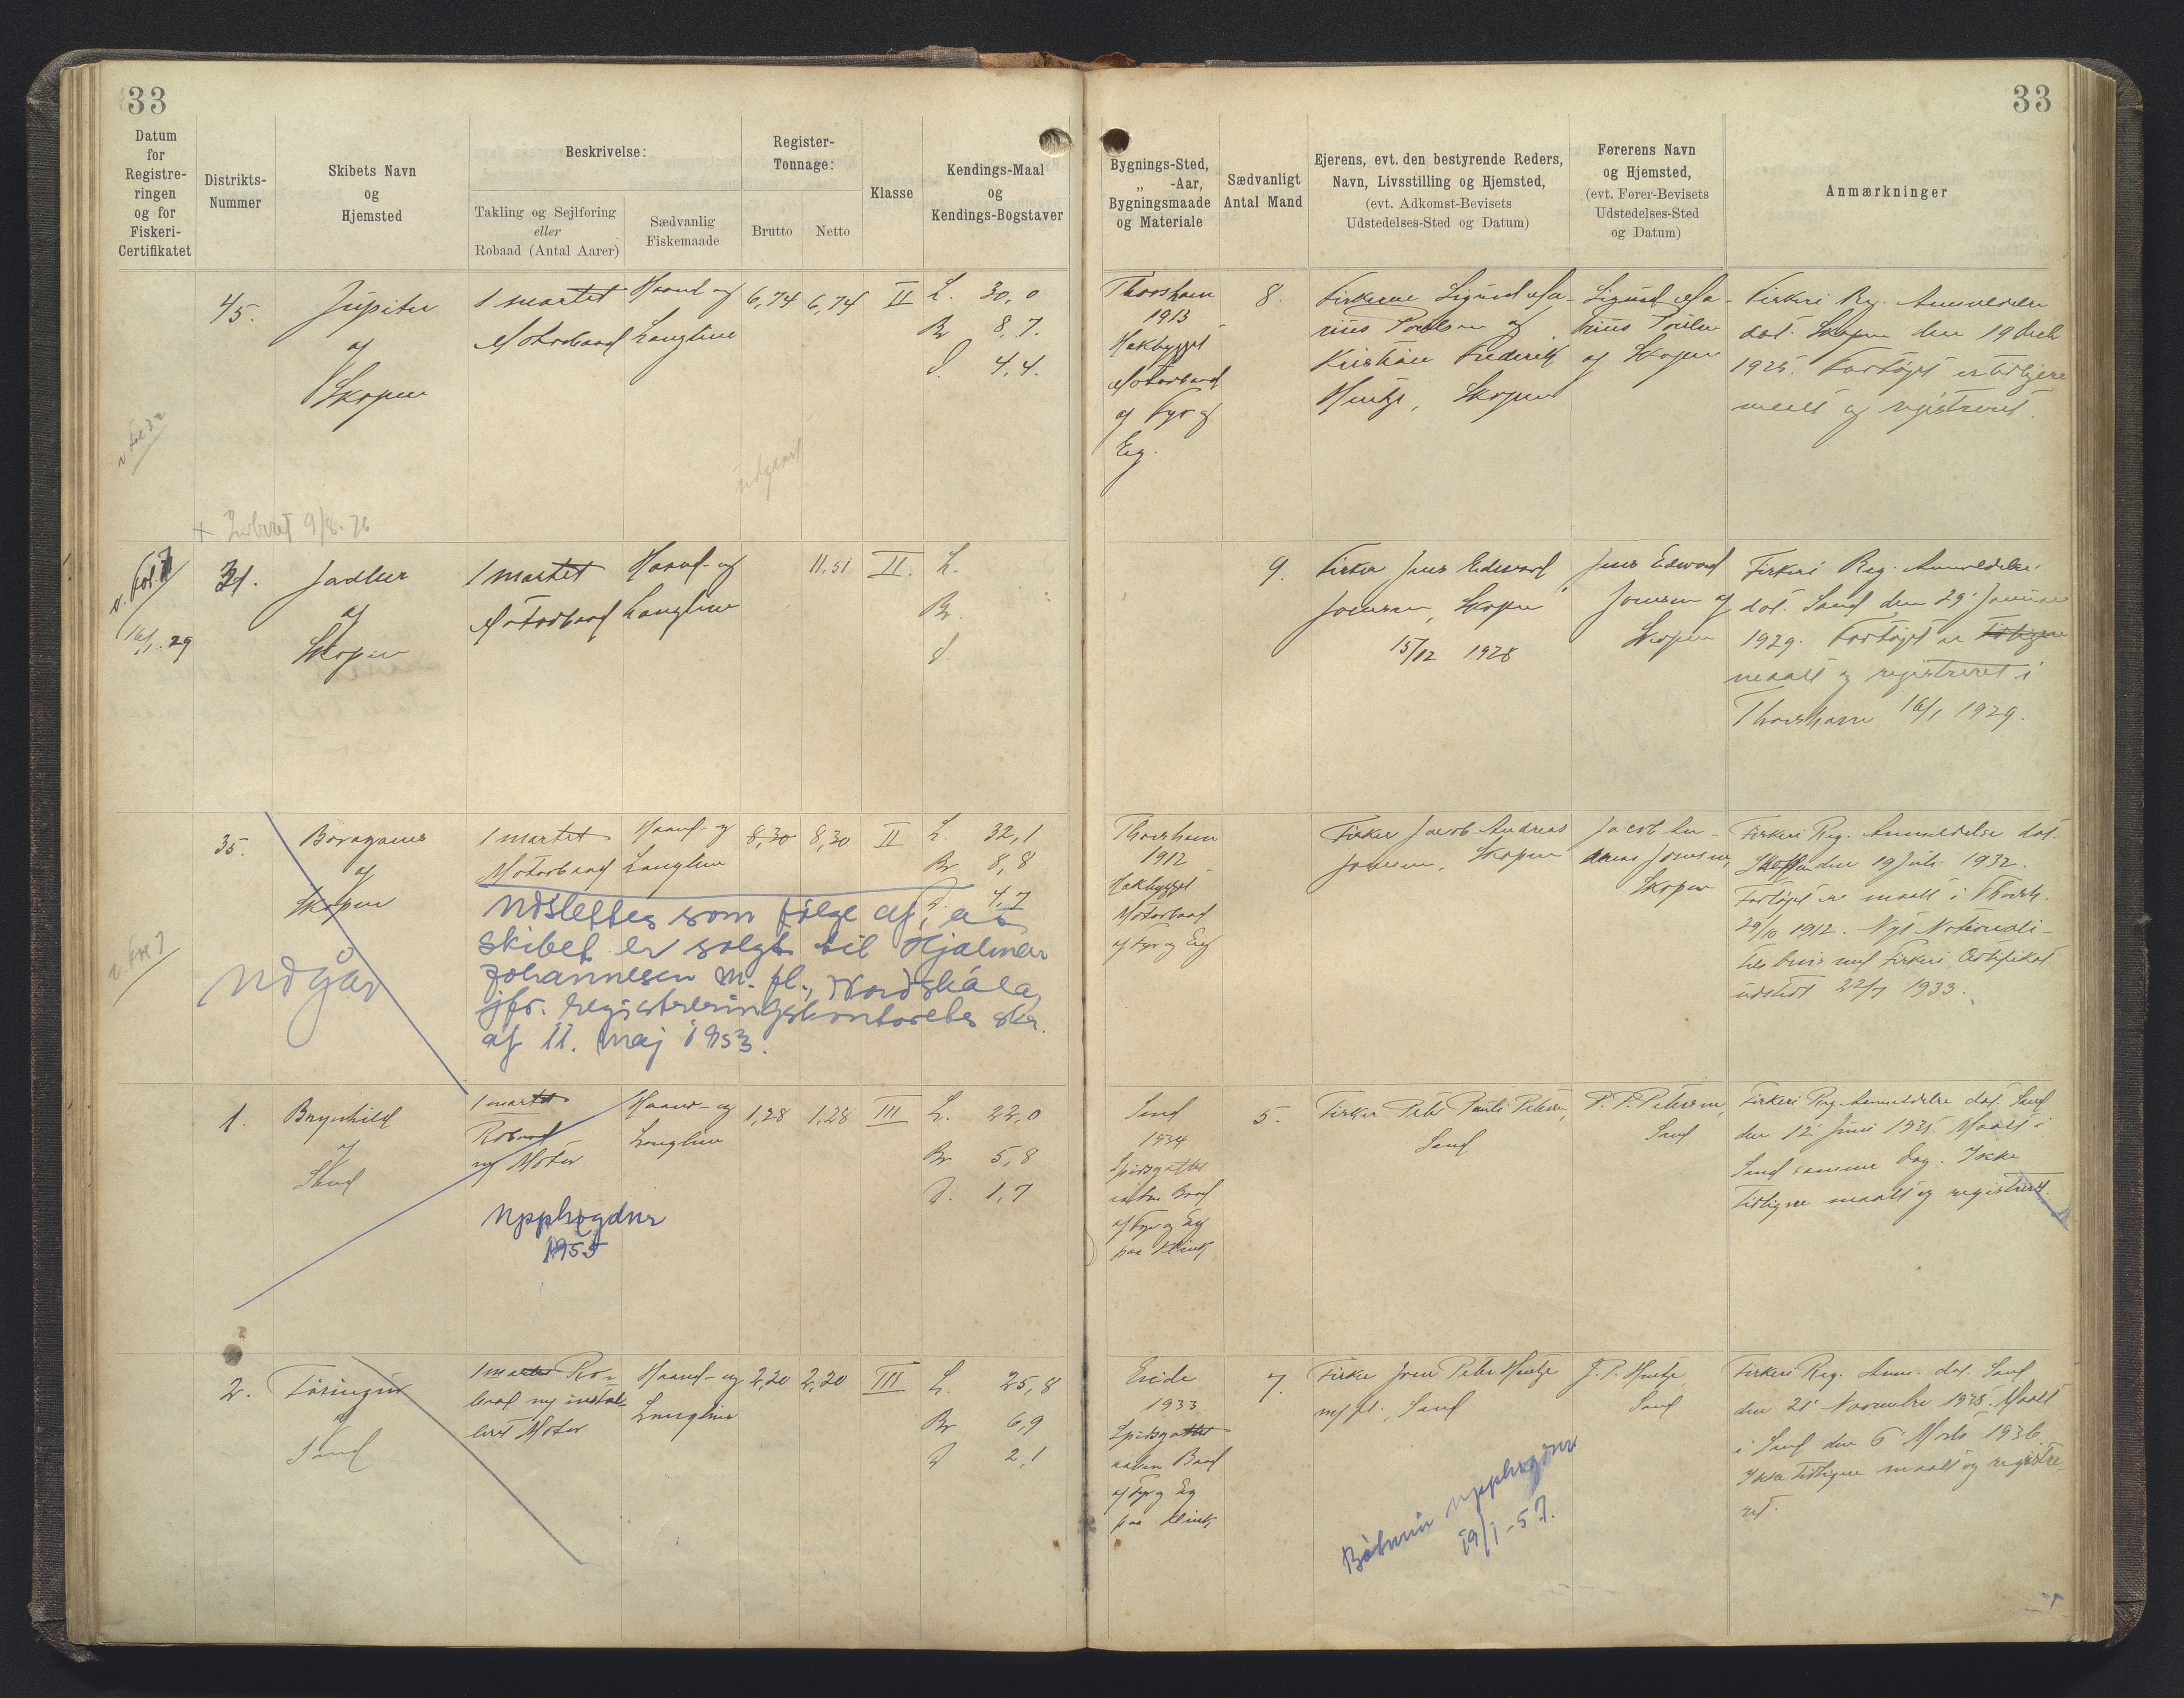 33
33
Datum
for
Registre-
ringen
og for
Fiskeri-
Certifikatet
Distrikts-
Nummer
Skibets Navn
og
Hjemsted
Beskrivelse:
Takling og Sejlføring
eller
Robaad (Antal Aarer)
Sædvanlig
Fiskemaade
Register-
Tonnage:
Brutto
Netto
Klasse
Kendings-Maal
og
Kendings-Bogstaver
Bygnings-Sted,
„ -Aar,
Bygningsmaade
og Materiale
Sædvanligt
Antal Mand
Ejerens, evt. den bestyrende Reders,
Navn, Livsstilling og Hjemsted,
(evt. Adkomst-Bevisets
Udstedelses-Sted og Datum)
Førerens Navn
og Hjemsted,
(evt. Fører-Bevisets
Udstedelses-Sted
og Datum)
Anmærkninger
45.
Jupiter
af
Skopen
1 mastet
Motorbaad
Haand- og
Langline
6,74
6,74
II
L. 30,0
Br 8,7.
D. 4,4.
Thorshavn
1913
Hækbygget
Motorbaad
af Fyr og
Eg.
8.
Fiskerne Sigurd Ma-
rius Poulsen og
Kristian Frederik
Hentze, Skopen
Sigurd Ma-
rius Poulsen
af Skopen
Fiskeri Reg. Anmeldelse
dat. Skopen den 19
1925. Fartøjet er tidligere
maalt og registreret.
udgaaet
31.
af
Skopen
1 mastet
Motorbaad
Haand- og
Langline
11,51
II.
L.
Br.
D.
16/1. 29
9.
Fisker Jens Edward
Joensen, Skopen
15/12 1928
Jens Edward
Joensen af
Skopen
Fiskeri Reg. Anmeldelse
dat. Sand den 29' Januar
1929. Fartøjet er tidligere
maalt og registreret i
Thorshavn 16/1 1929.
35.
af
Skopen
udgår
1 mastet
Motorbaad
Haand- og
Langline
8,30
8,30
II
L. 32,1
Br 8,8
D. 4,7
Udslettes som følge af, at
skibet er solgt til Hjalmar
Johannesen m. fl., Nordskála,
jfr. registreringskontorets skr.
af 11. maj 1953.
Thorshavn
1912
Hækbygget
Motorbaad
af Fyr og Eg
Fisker Jacob Andreas
Joensen, Skopen
Jacob An-
dreas Joensen,
Skopen
Fiskeri Reg. Anmeldelse dat.
Skopen den 19 Juli 1932.
Fartøjet er maalt i Thorsh.
29/10 1912. Nyt Nationali-
tets bevis med Fiskeri Certifikat
udstedt 22/7 1933.
1.
Brynhild
af
Sand
1 mastet
Robaad
m/ Motor
Haand- og
Langline
1,28
1,28
III
L. 22,0
Br 5,8
D. 1,7
Upphøgdur
1955
Sand
1934
Spidsgattet
aaben Baad
af Fyr og Eg
paa Klink
5.
Fisker Peter Pauli Petersen,
Sand
P. P. Petersen,
Sand
Fiskeri Reg. Anmeldelse dat. Sand
den 12' Juni 1935. Maalt i
Sand samme Dag. Ikke
tidligere maalt og registreret.
2.
af
Sand
1 mastet Ro-
baad m/ instal-
leret Motor
Haand- og
Langline
2,20
2,20
III
L. 25,8
Br 6,9
D 2,1
1933
Spidsgattet
aaben Baad
af Fyr og Eg
paa Klink
7.
Fisker Joen Peter Hentze
m/fl., Sand
J. P. Hentze
Sand
Fiskeri Reg. Anm. dat. Sand
den 21' Novembre 1935. Maalt
i Sand den 6 Marts 1936
Ikke tidligere maalt og registre-
ret.
Báturin upphøgdur
19/1-57.